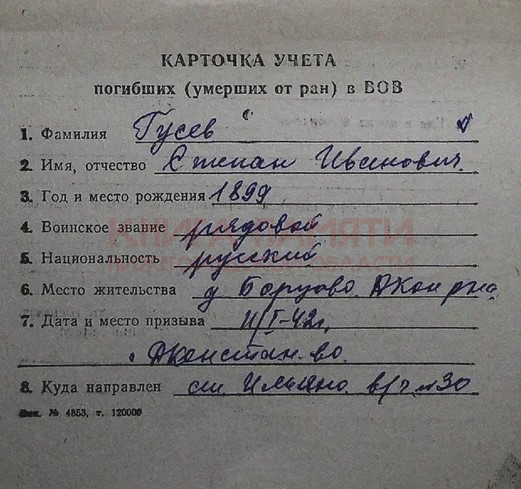 КАРТОЧКА УЧЕТА
погибших (умерших от ран) в ВОВ
1. Фамилия Гусев
2. Имя, отчество Степан Иванович.
3. Год и место рождения 1899
4. Воинское звание рядовой
КНИГА ПАМЯТИ
5. Национальность русский
6. Место жительства д Борцово.
7. Дата и место призыва 11/I-42г,
8. Куда направлен ст в/ч №30
Зак. № 4853, т. 120000